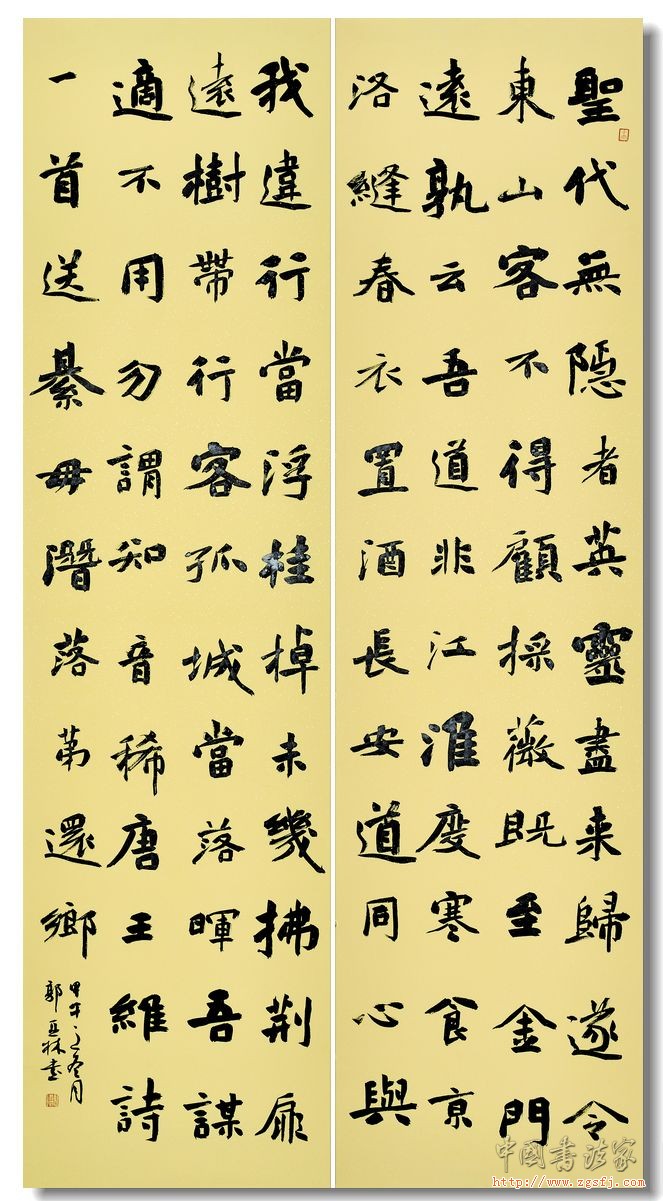 聖代無隱者英靈盡来歸遂令
東山客不得顧採薇既至金門
遠孰云吾道非江淮度寒食京
洛縫春衣置酒長安道同心與
我違行當浮桂棹未幾拂荆扉
遠樹帶行客孤城當落暉吾謀
適不用勿謂知音稀唐王維詩
一首送綦毋潛落第還鄉
甲午之冬月
郭亞林書
中國書法家
http://www.zgsfj.com